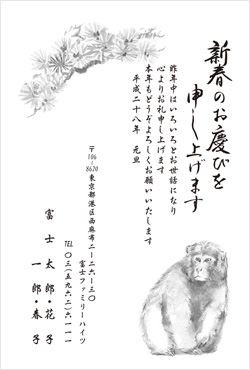 新春のお慶びを
申し上げます
昨年中はいろいろとお世話になり
心よりお礼申し上げます
本年もどうぞよろしくお願いいたします
平成二十八年 元旦
〒106-8620
東京都港区西麻布二-二六-三〇
富士ファミリーハイツ
TEL 〇三(五九六二)六一一一
富士太郎・花子
一郎・春子